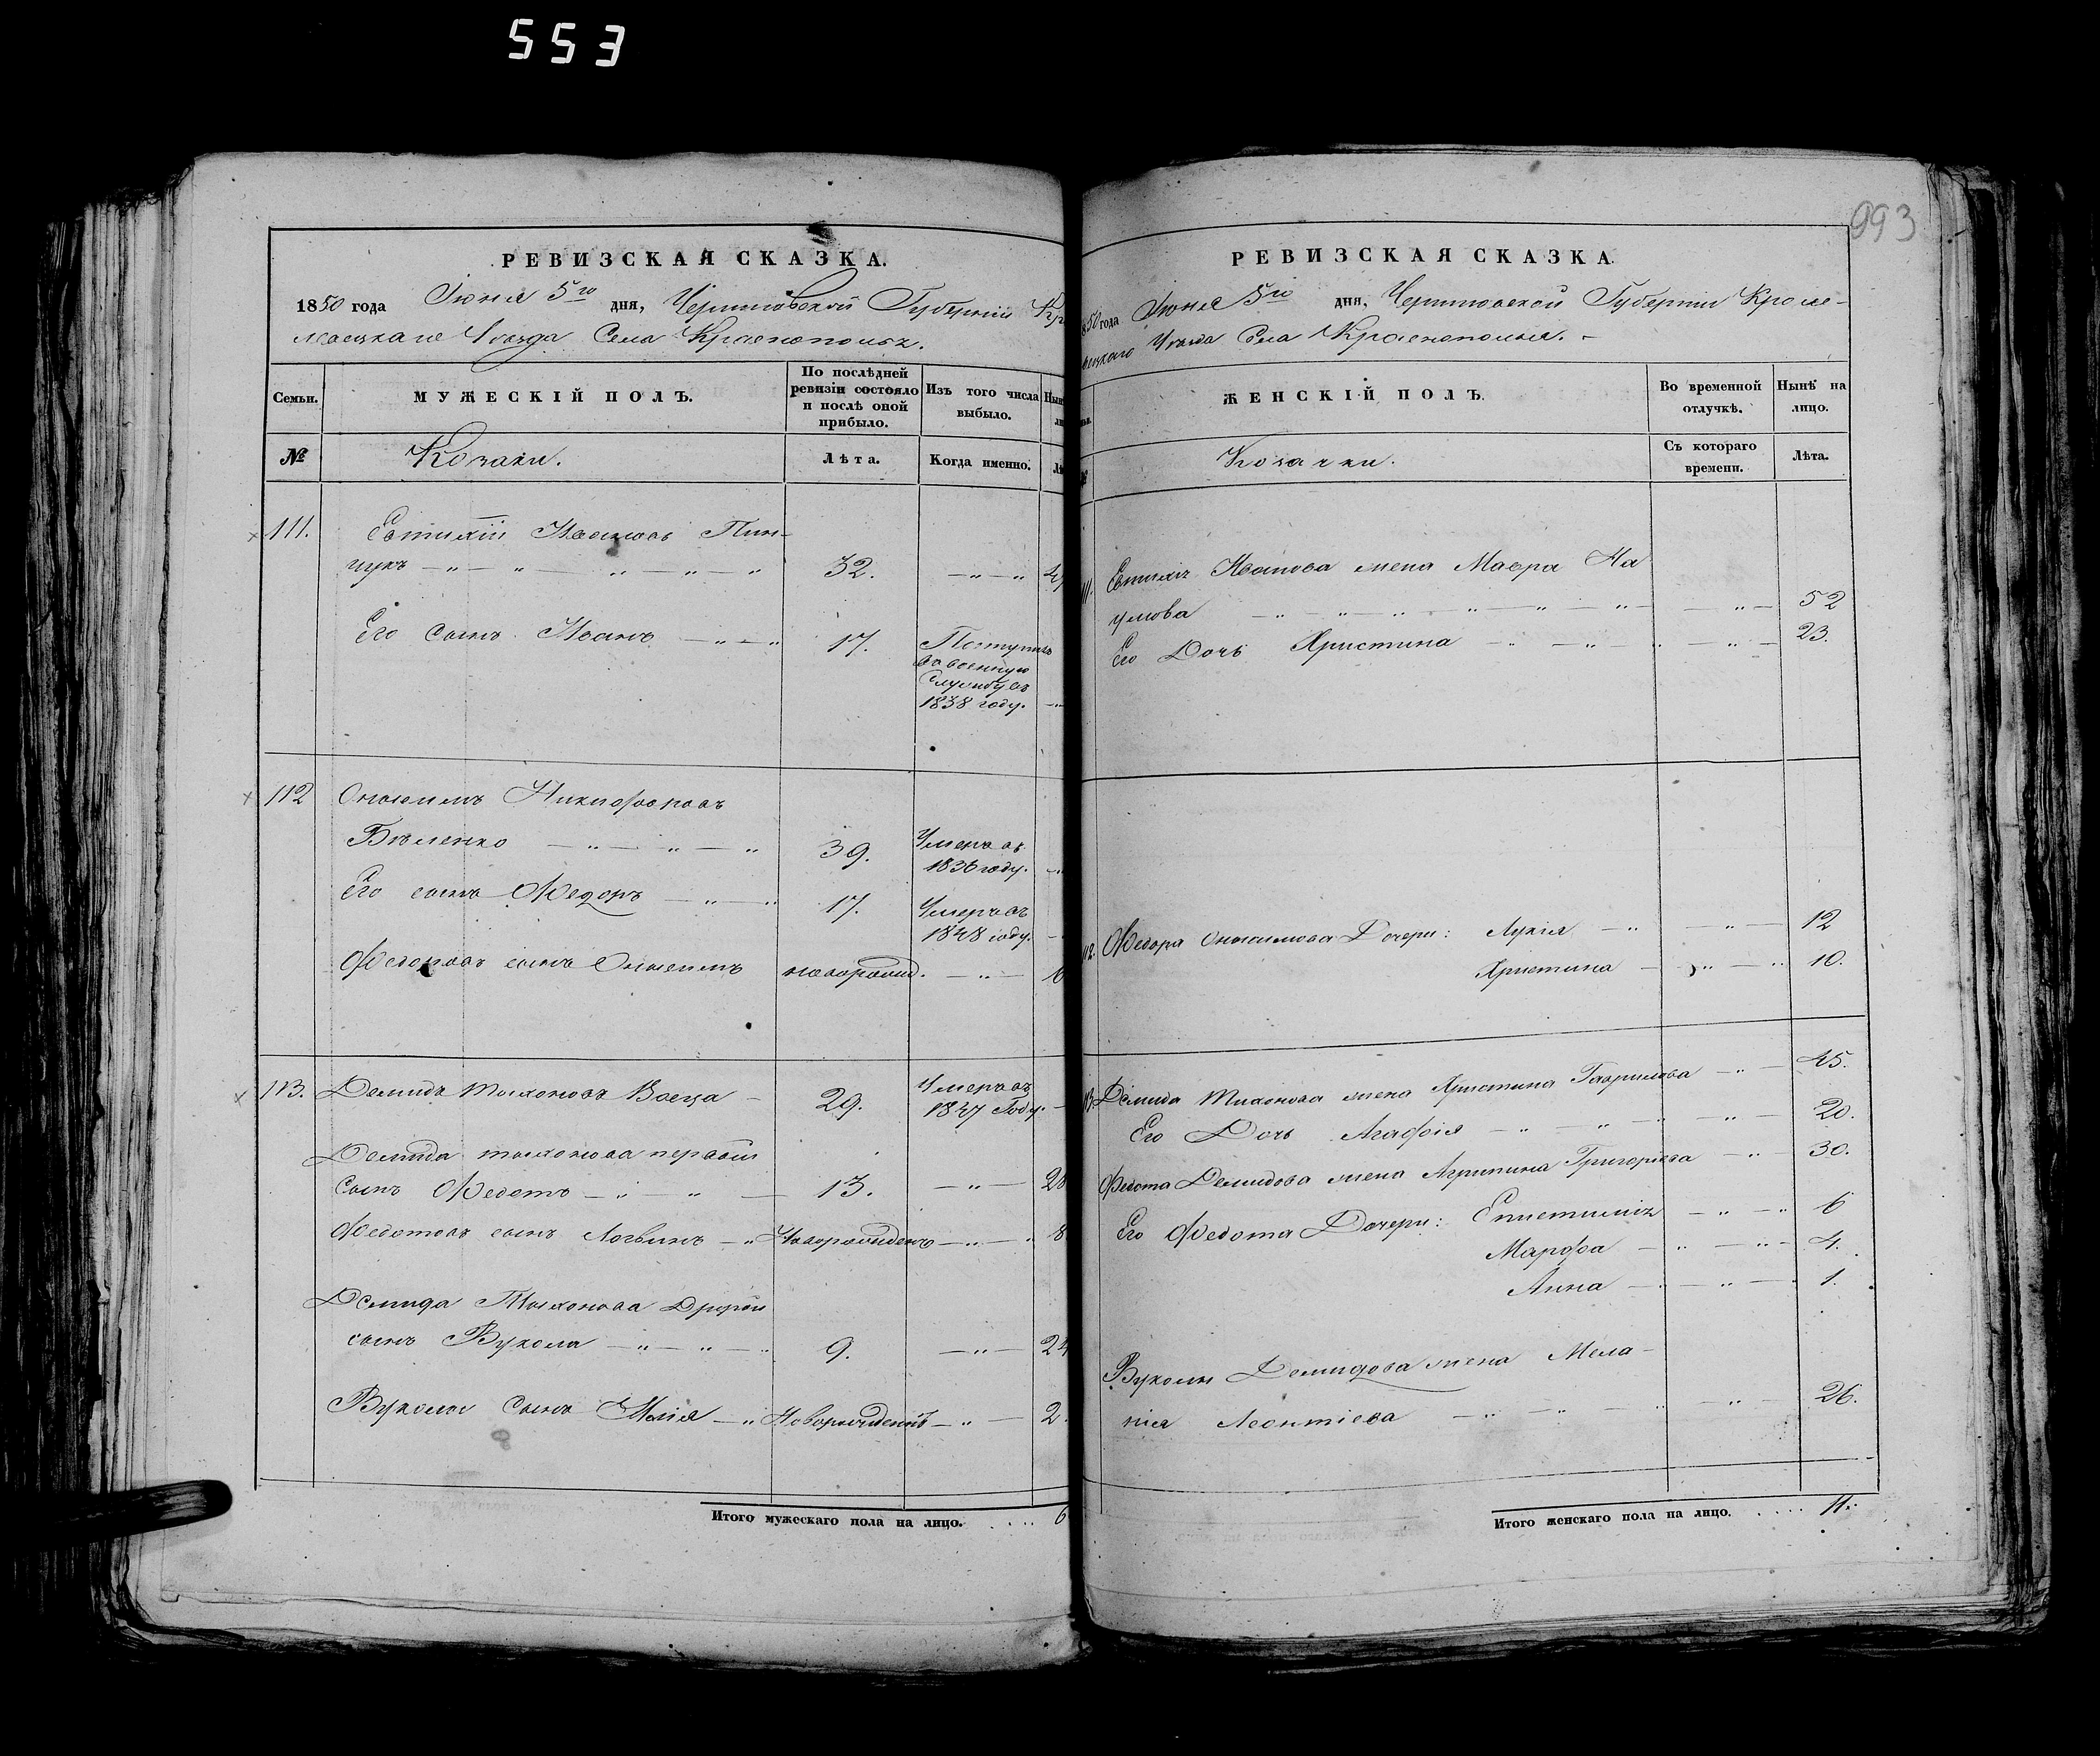 553
РЕВИЗСКАЯ СКАЗКА.
1850 года Іюня 5го дня, Черниговской Губерніи
Уѣзда Села Краснополья.
Семьи.
МУЖЕСКІЙ ПОЛЪ.
По послѣдней ревизіи состояло и послѣ оной прибыло.
Изъ того числа выбыло.
№
Козаки.
Лѣта.
Когда именно.
111.
Евтихій Ивановъ Пин-
чукъ 32.
Его Сынъ Иванъ 17. Поступилъ
въ военную
службу въ
1838 году.
112 Онисимъ Никифоровъ
Бѣленко 39. Умеръ въ
1836 году.
Его сынъ Ѳедоръ 17. Умеръ въ
1848 году.
Ѳедоровъ сынъ Онисимъ новорожд.
113. Демидъ Тихоновъ Воеца 29. Умеръ въ
1847 Году.
Демида Тихонова первый
Сынъ Ѳедотъ 13. 28
Ѳедотовъ сынъ Логвинъ Новорожденъ 8
Демида Тихонова Другой
сынъ Вукола 9. 24
Вуколы Сынъ Илія Новорожденъ 2
Итого мужескаго пола на лицо. 6
993
РЕВИЗСКАЯ СКАЗКА
50 года Іюня 5го дня, Черниговской Губерніи Кроле-
вецкаго Уѣзда Села Краснополья.
ЖЕНСКІЙ ПОЛЪ.
Во временной отлучкѣ.
Нынѣ на лицо.
Козачки.
Съ котораго времени.
Лѣта.
Евтихія Иванова жена Мавра На
умова 52
Его Дочь Христина 23.
Ѳедора Онисимова Дочери: Лукія 12
Христина 10.
Демида Тихонова жена Христина Гаврилова 45.
Его Дочь Агафія 20.
Ѳедота Демидова жена Агрипина Григоріева 30.
Его Ѳедота Дочери: Епистимія 6
Марфа 4.
Анна 1.
Вуколы Демидова жена Мела-
нія Леонтіева 26.
Итого женскаго пола на лицо. 11.